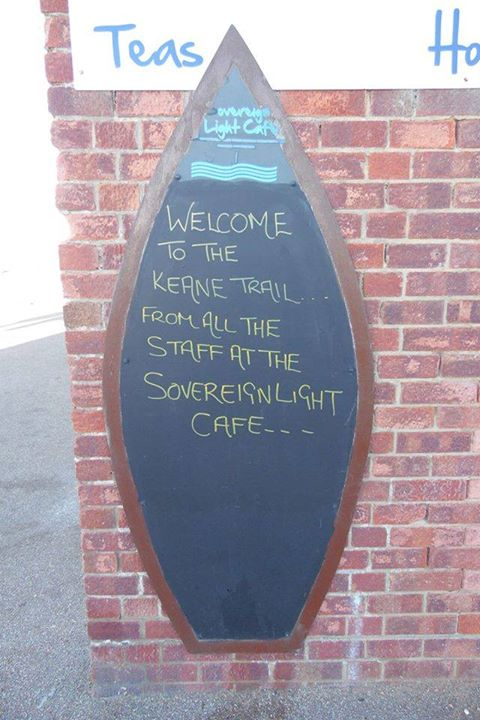 Teas
Ho
Sovereign
Light Cafe
WELCOME
TO THE
KEANE TRAIL...
FROM ALL THE
STAFF AT THE
SOVEREIGN LIGHT
CAFE---